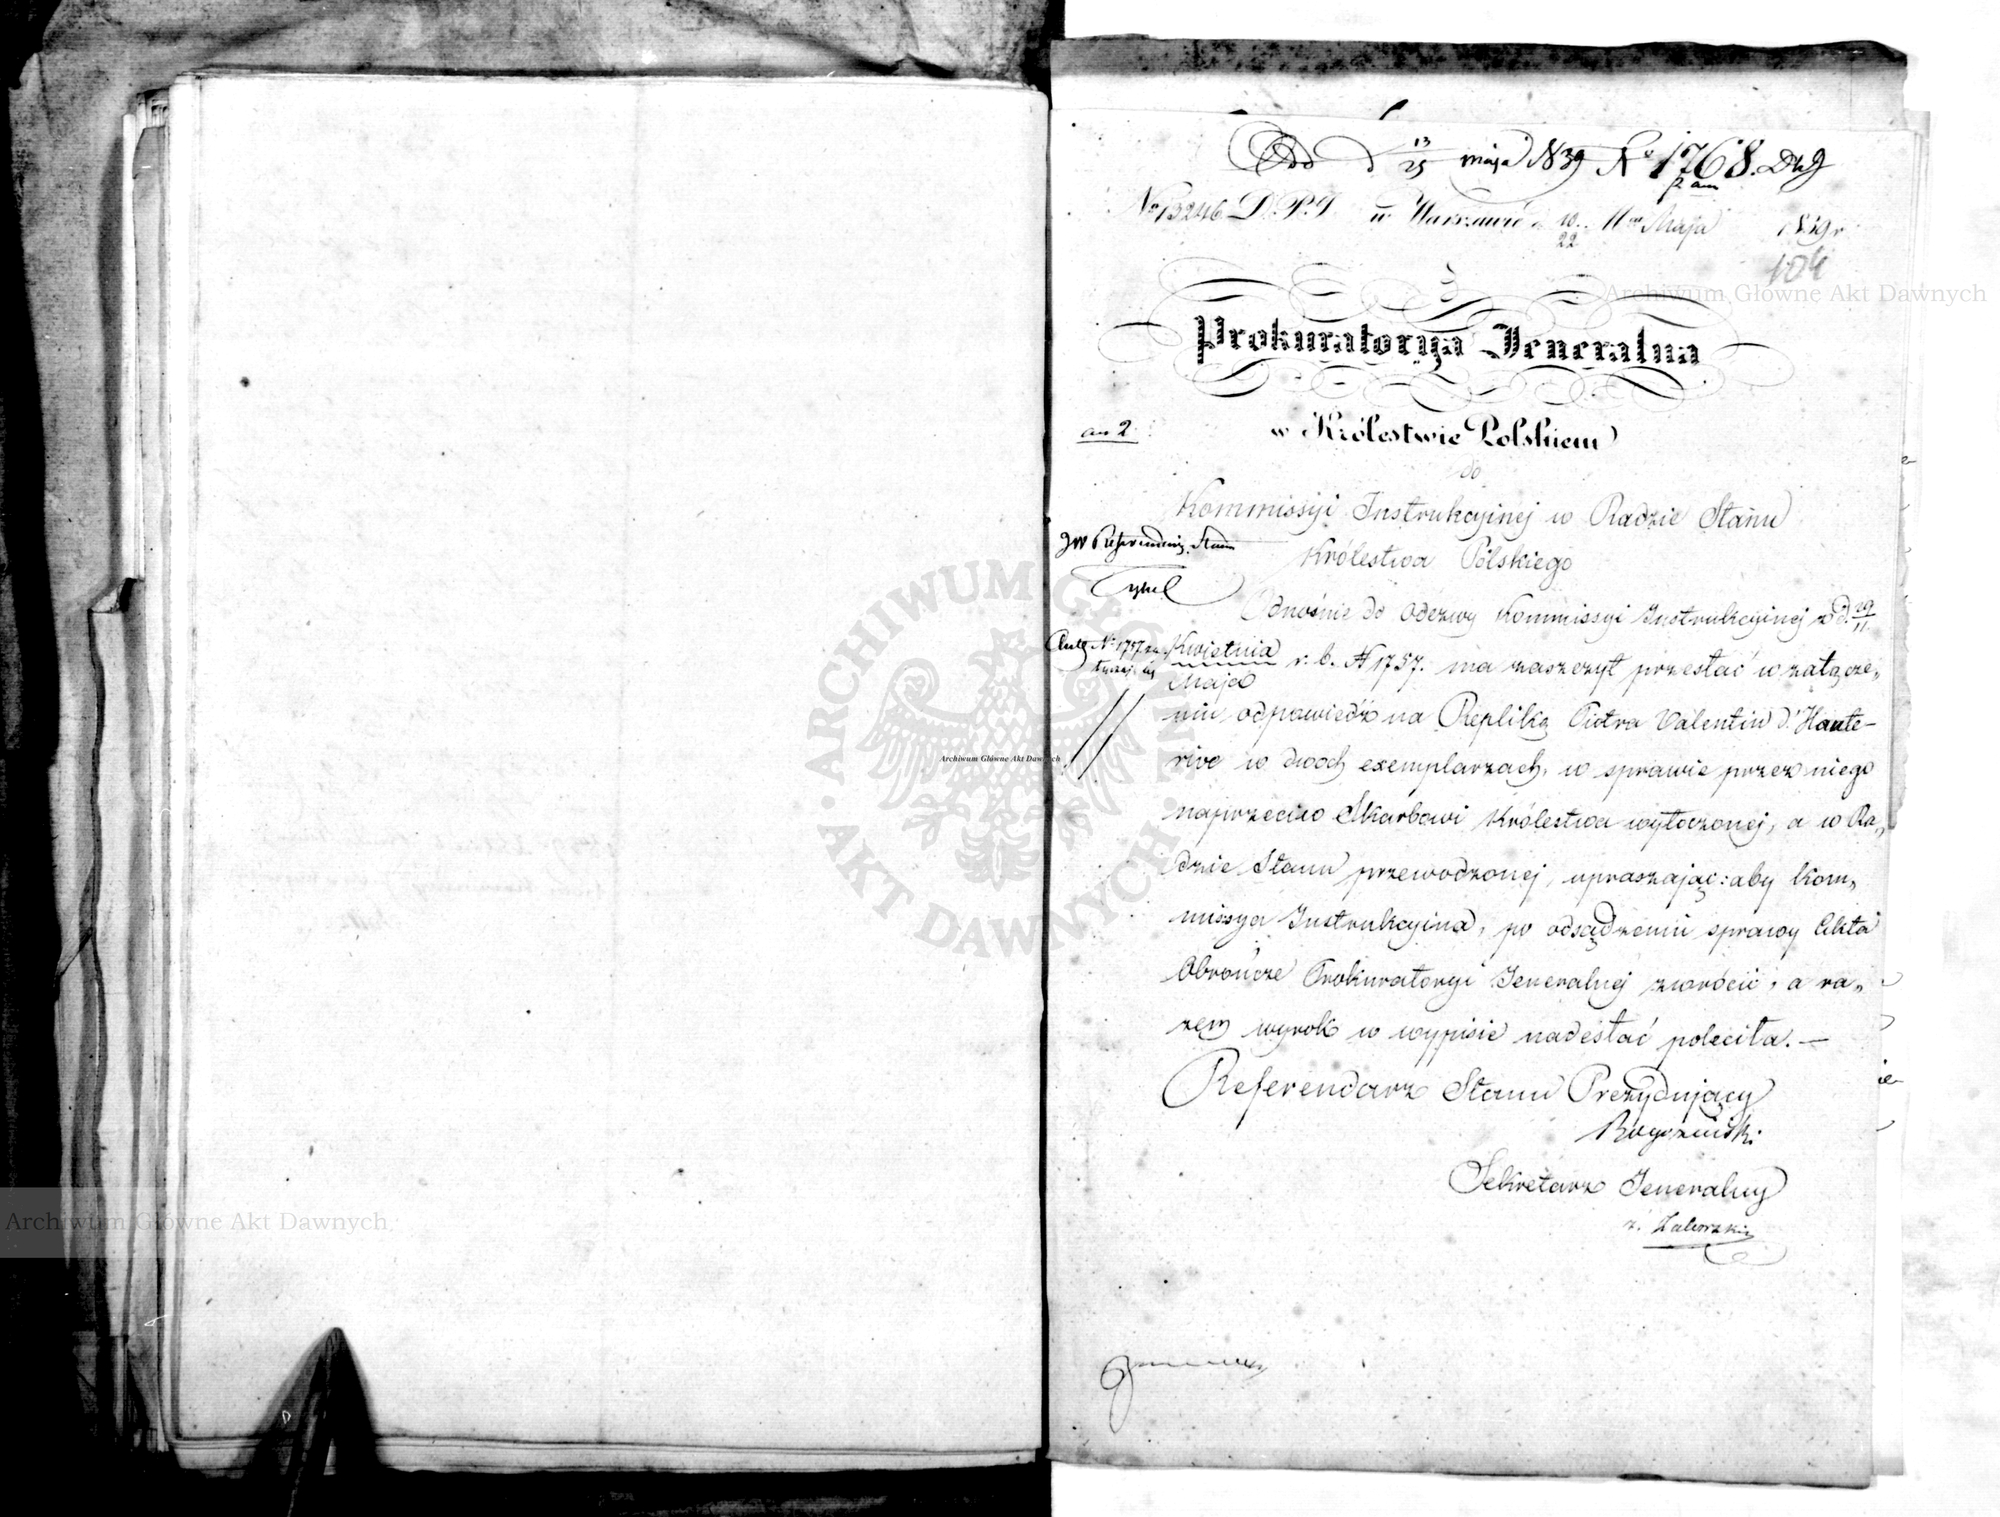 d 13/25 maja 1839 No 1768.
No 13246 D.P.J. w Warszawie d. 10/22 Mca Maja 1839 r.
104
Prokuratorya Jeneralna
w Królestwie Polskiem
an 2
do
Kommissyi Instrukcyinej w Radzie Stanu
Królestwa Polskiego
JW Referendarz Stanu
Odnośnie do odezwy Kommissyi Instrukcyinej z d. 29/11
No 1757
Kwietnia/Maja r. b. N 1757. ma zaszczyt przesłać w załącze„
niu odpowiedź na Replikę Piotra Valentin d'Haute-
rive w dwoch exemplarzach, w sprawie przez niego
naprzeciwo Skarbowi Królestwa wytoczonej, a w Ra„
dzie Stanu przewodzonej, upraszając: aby Kom„
missya Instrukcyina, po odsądzeniu sprawy Akta
Obrończe Prokuratoryi Jeneralnej zwrócić, a ra„
zem wyrok w wypisie nadesłać poleciła. —
Referendarz Stanu Prezydujący
Sekretarz Jeneralny
Archiwum Główne Akt Dawnych
Archiwum Główne Akt Dawnych
Archiwum Główne Akt Dawnych
ARCHIWUM GŁÓWNE AKT DAWNYCH